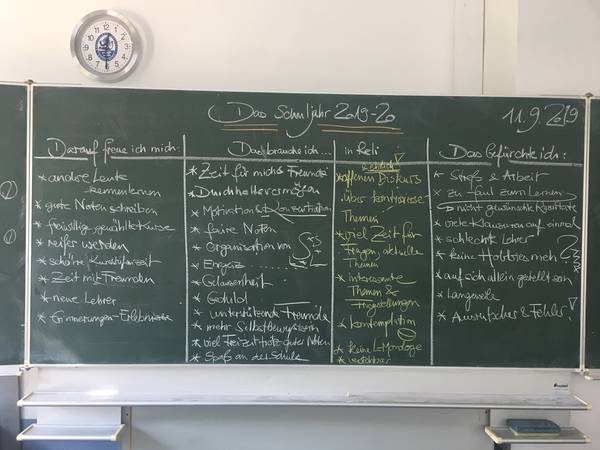 Das Schuljahr 2019-20
11.9.2019
Darauf freue ich mich:
* andere Leute
kennenlernen
* gute Noten schreiben
* freiwillig gewählte Kurse
* reifer werden
* schöne Kursfahrtzeit
* Zeit mit Freunden
* neue Lehrer
* Erinnerungen - Erlebnisse
Das brauche ich ...
* Zeit für mich & Freunde
* Durchhaltevermögen
* Motivation & Konzentration
* faire Noten
* Organisation von
* Ehrgeiz
* Gelassenheit
* Geduld
* unterstützende Freunde
* mehr Selbstbewusstsein
* viel Freizeit trotz guter Noten
* Spaß an der Schule
in Reli
* offenen Diskurs
über kontroverse
Themen
* viel Zeit für
Fragen, aktuelle
Themen
* interessante
Themen &
Fragestellungen
* kontemplation
* keine L-Monologe
Das befürchte ich:
* Streß & Arbeit
* zu faul zum Lernen
nicht gewünschte Resultate
* viele Klausuren auf einmal
* schlechte Lehrer
* keine Hobbies mehr
* auf sich allein gestellt sein
* Langeweile
* Ausrutscher & Fehler!